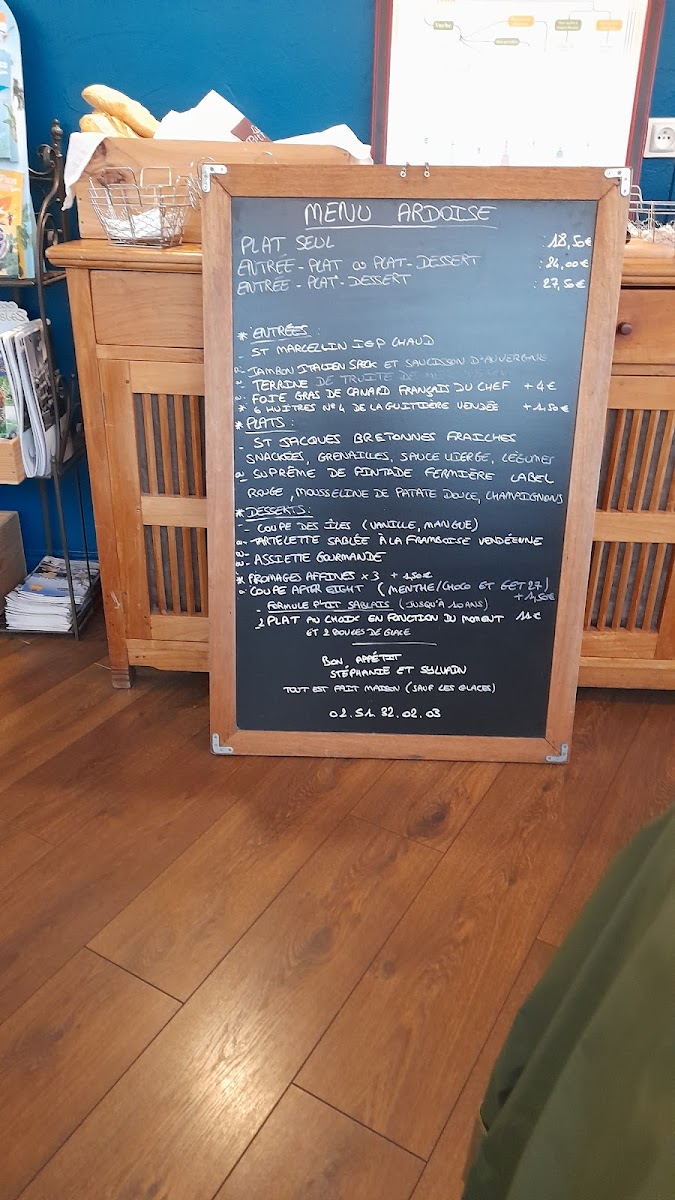 MENU ARDOISE
PLAT SEUL : 18,50€
ENTRÉE - PLAT OU PLAT - DESSERT : 24,00€
ENTRÉE - PLAT - DESSERT : 27,50€
* ENTRÉES :
- ST MARCELLIN IGP CHAUD
- JAMBON ITALIEN SPECK ET SAUCISSON D'AUVERGNE
- TERRINE DE TRUITE DE
- FOIE GRAS DE CANARD FRANÇAIS DU CHEF + 4€
* 6 HUITRES N°4 DE LA GUITTIÈRE VENDÉE + 1,50€
* PLATS :
- ST JACQUES BRETONNES FRAICHES
SNACKÉES, GRENAILLES, SAUCE VIERGE, LÉGUMES
- SUPRÊME DE PINTADE FERMIÈRE LABEL
ROUGE, MOUSSELINE DE PATATE DOUCE, CHAMPIGNONS
* DESSERTS :
- COUPE DES ÎLES (VANILLE, MANGUE)
- TARTELETTE SABLÉE À LA FRAMBOISE VENDÉENNE
- ASSIETTE GOURMANDE
* FROMAGES AFFINES x 3 + 1,50€
- COUPE AFTER EIGHT (MENTHE/CHOCO ET GET 27)
+ 1,50€
- FORMULE P'TIT SABLAIS (JUSQU'À 10 ANS)
1 PLAT AU CHOIX EN FONCTION DU MOMENT 11€
ET 2 BOULES DE GLACE
BON APPÉTIT
STÉPHANIE ET SYLVAIN
TOUT EST FAIT MAISON (SAUF LES GLACES)
02.51.32.02.03